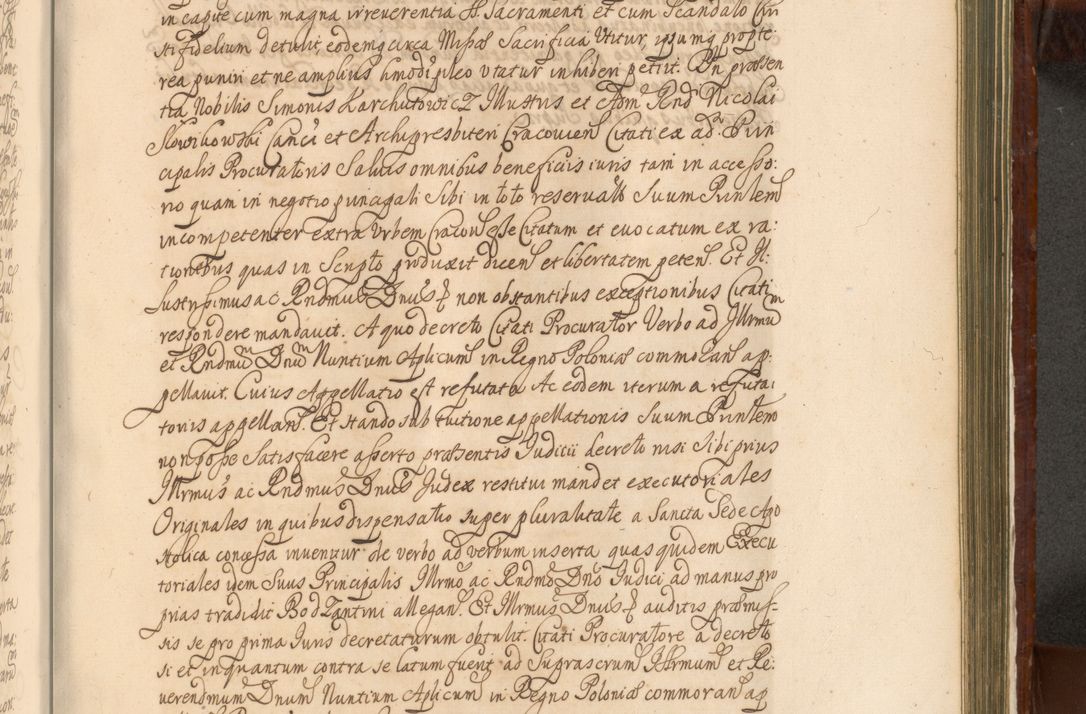 in capite cum magna irreverentia SS. Sacramenti et cum Scandalo Chri
sti fidelium detulit, eodemq circa Missas Sacrificia Utitur, ipsumq propte
rea puniri et ne amplius hmodi pileo utatur inhiberi petiit. In præsen
tia Nobilis Simonis Karchutowicz Illustris et Adm Rnd Nicolai
Słowikowski Canci et Archipresbiteri Cracovien Citati ex adv Prin
cipalis Procuratoris Salvis omnibus beneficiis iuris tam in accesso
rio quam in negotio principali Sibi in toto reservatis Suum Prinlem
incompetenter extra Urbem Cracov esse Citatum et evocatum ex ra
tionibus quas in Scripto produxit dicen et libertatem peten. Et Il
lustrissimus ac Rndmus Dnus non obstantibus exceptionibus Citati
respondere mandavit. A quo decreto Citati Procurator Verbo ad Illrmum
et Rndmum Dnum Nuntium Aplicum in Regno Poloniæ commoran ap
pellavit. Cuius Appellatio est refutata Ac eodem iterum a refuta
tionis appellan. Et stando sub tuitione appellationis Suum Prinlem
non posse Satisfacere asserto præsentis Iudicii decreto nisi Sibi prius
Illrmus ac Rndmus Dnus Judex restitui mandet executoriales
Originales in quibus dispensatio super pluralitate a Sancta Sede Apo
stolica concessa invenitur de verbo ad verbum inserta quas quidem Execu
toriales idem Suus Principalis Illrmo ac Rndmo Dno Iudici ad manus pro
prias tradidit Bodzantini allegan. Et Illrmus Dnus auditis præmis
sis se pro prima Iuris decretaturum obtulit. Citati Procuratore a decreto
si et inquantum contra se latum fuerit ad Suprascrum Illrmum et Re
verendmum Dnum Nuntium Aplicum in Regno Poloniæ commoran ap